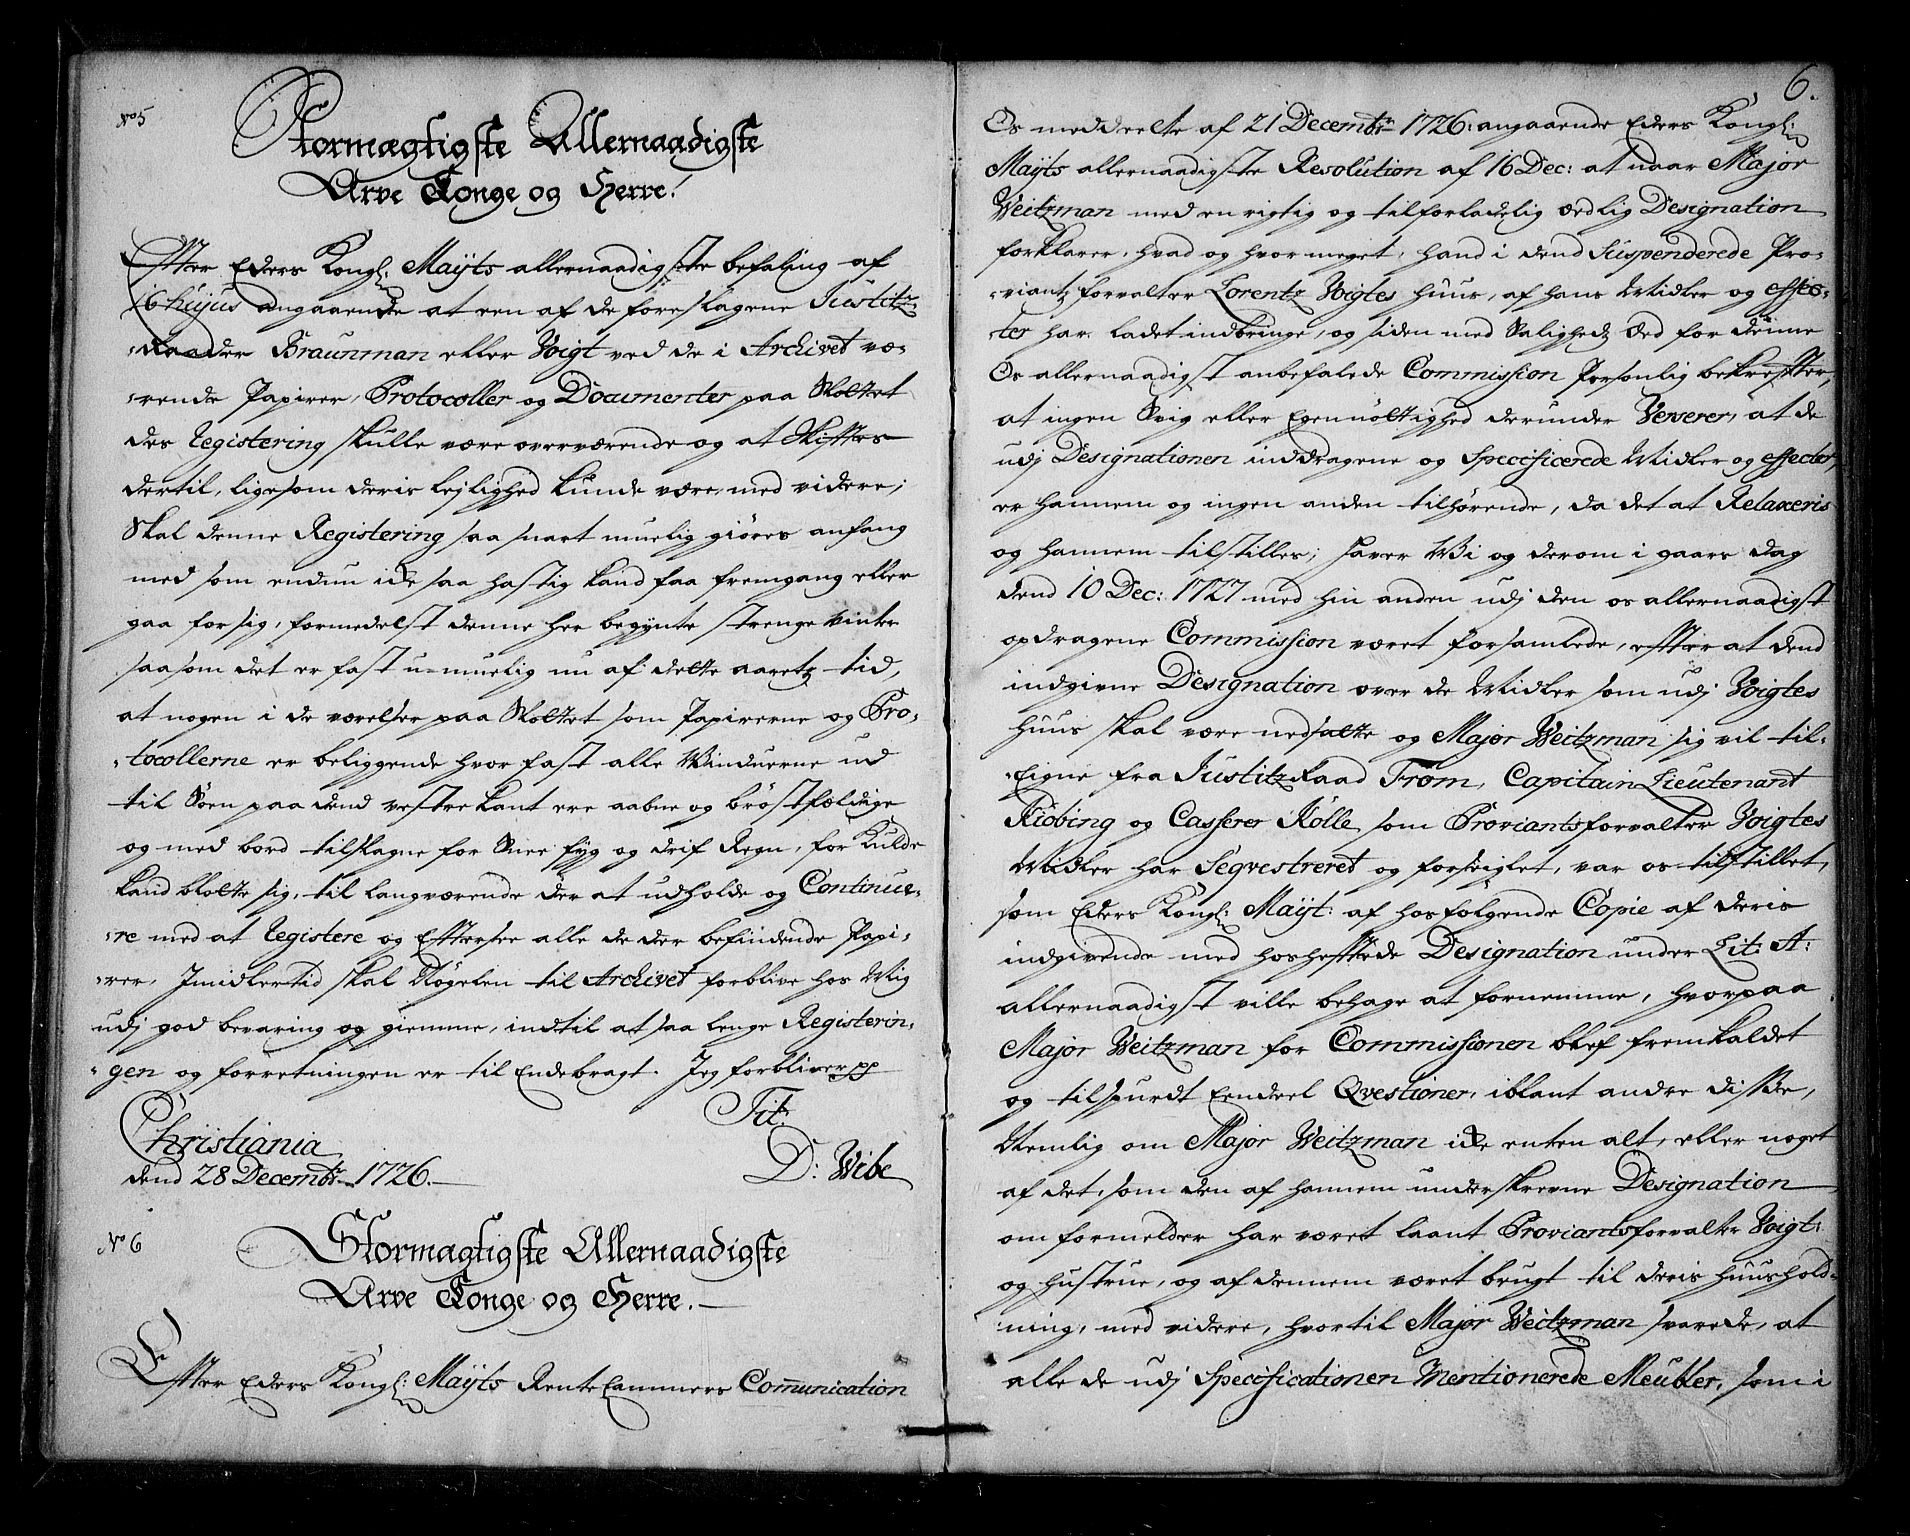 No 5
Stormægtigste Allernaadigste
Arve Konge og Herre!
Efter Eders Kongl: Mayts allernaadigste befaling af
16 hujus angaaende at een af de foreslagene Justitz-
-Raader Braunman eller Voigt ved de i Archivet væ-
-rende Papirer, Protocoller og Documenter paa Slottet
des Registering skulle være overværende og at skiftes
dertil, ligesom deris lejlighed kunde være, med videre;
Skal denne Registering saa snart muelig giøres anfang
med som endnu icke saa hastig kand faa fremgang eller
gaa for sig, formedelst denne her begynte strenge vinter
saasom det er fast u-muelig nu af dette aaretz tid,
at nogen i de værelser paa Slottet som Papirerne og Pro-
-tocollerne er beliggende hvor fast alle Vinduerne ud
til Søen paa dend vestre kant ere aabne og brøstfældige
og med bord tilslagne for Snee fyg og drif Regn, for Kulde
kand blotte sig, til langværende der at udholde og Continue-
-re med at Registere og Eftersee alle de der befindende Papi-
-rer, Imidlertid skal Nøgelen til Archivet forblive hos Mig
udj god bevaring og giemme, indtil at saa lenge Registerin-
-gen og forretningen er til Endebragt. Jeg forbliver pp
Tit:
Christiania
dend 28 Decembr 1726.
D: Wibe
No 6
Stormægtigste Allernaadigste
Arve Konge og Herre.
Efter Eders Kongl: Mayts Rente Cammers Communication
6.
Os meddeelte af 21 Decembr 1726: angaaende Eders Kongl:
Mayts allernaadigste Resolution af 16 Dec: at naar Major
Weitzman med en rigtig og tilforladelig Ædlig Designation
forklarer, hvad og hvor meget, hand i dend Suspenderede Pro-
-viantz forvalter Lorentz Voigtes huus, af hans Midler og effec-
-ter har ladet indbringe, og siden med Saligheds Æd for denne
Os allernaadigst anbefalede Commission Personlig bekrefter,
at ingen Svig eller Egennøttighed derunder Verserer, at de
udj Designationen inddragene og Specificerede Midler og effecter,
er hannem og ingen anden tilhørende, da det at Relaxeris
og hannem tilstilles; haver Wi og derom i gaars dag
dend 10 Dec: 1727 med hin anden udj den os allernaadigst
opdragene Commission været forsamlede, efter at dend
indgivne Designation over de Midler som udj Voigtes
huus skal være nedsatte og Major Weitzman sig vil til-
-Eigne fra Justitz Raad From, Capitain Lieutenant
Kiøbing og Casserer Rølle, som Proviantsforvalter Voigtes
Midler har Seqvestreret og forseiglet, var os tilstillet,
som Eders Kongl: Mayt: af hosfølgende Copie af deris
indgivende med hosheftede Designation under Lit: A:
allernaadigst ville behage at fornemme, hvorpaa
Major Weitzman for Commissionen blef fremkaldet
og tilspurdt Eendeel Qvestioner, iblant andre disse,
Nemlig om Major Weitzman icke enten alt, eller noget
af det, som den af hannem underskrevne Designation
om formelder har været laant Proviantsforvalter Voigt:
og hustrue, og af dennem været brugt til deris huushold-
ning, med videre, hvortil Major Weitzman svarede, at
alle de udj Specificationen Mentionerede Meubler, som i